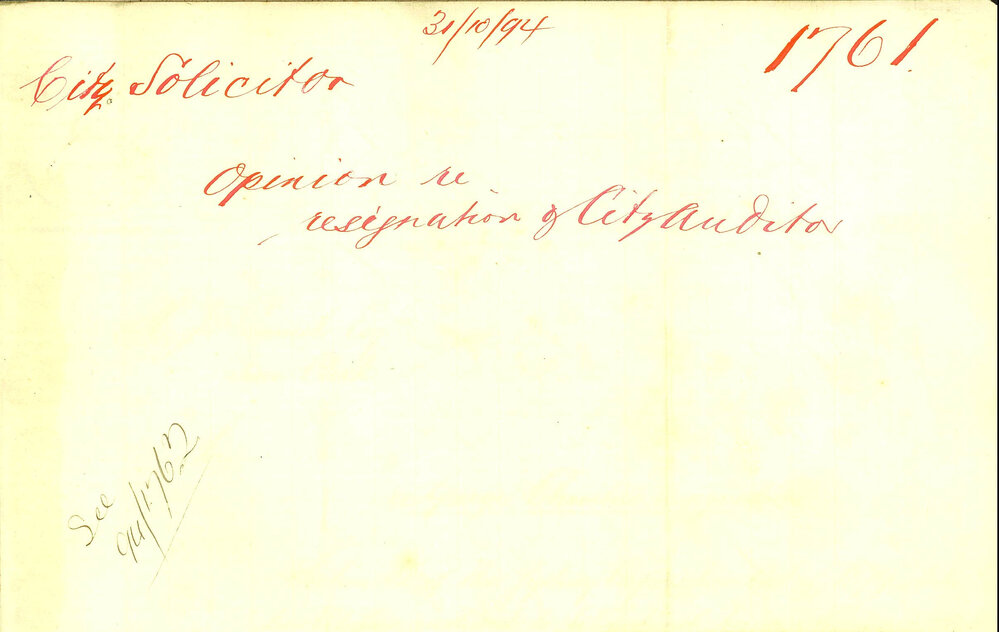 31/10/94
1761.
City Solicitor
Opinion re
resignation of City Auditor
See
94/1762